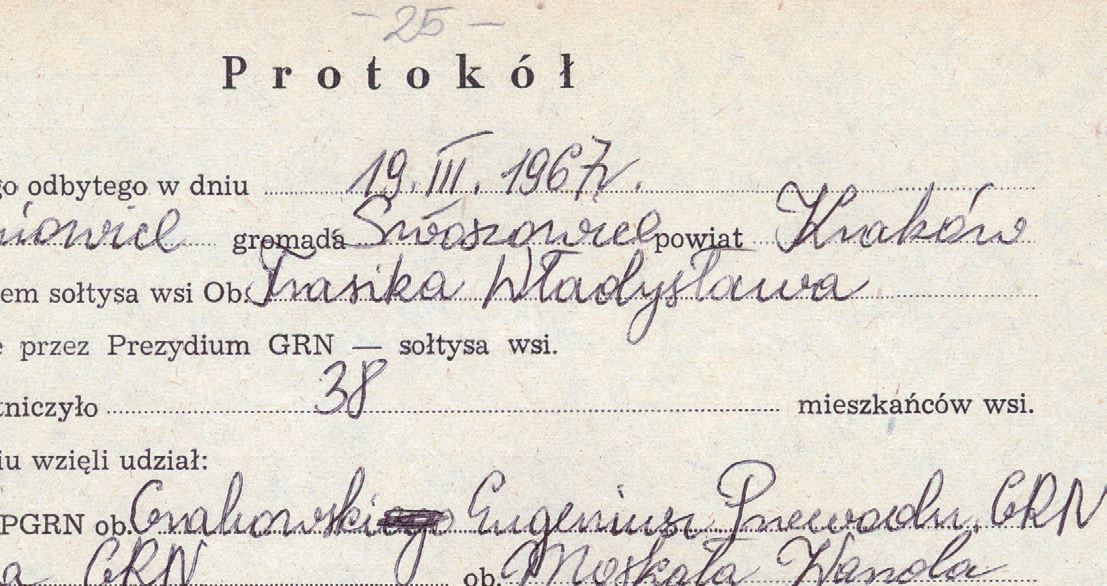 - 25 -
Protokół
go odbytego w dniu 19. III. 1967r.
niowice gromada Swoszowice powiat Kraków
em sołtysa wsi Ob. Trasika Władysława
e przez Prezydium GRN — sołtysa wsi.
niczyło 38 mieszkańców wsi.
iu wzięli udział:
PGRN ob. Eugeniusz Przewodn. GRN
a GRN ob. Moskała Wanda